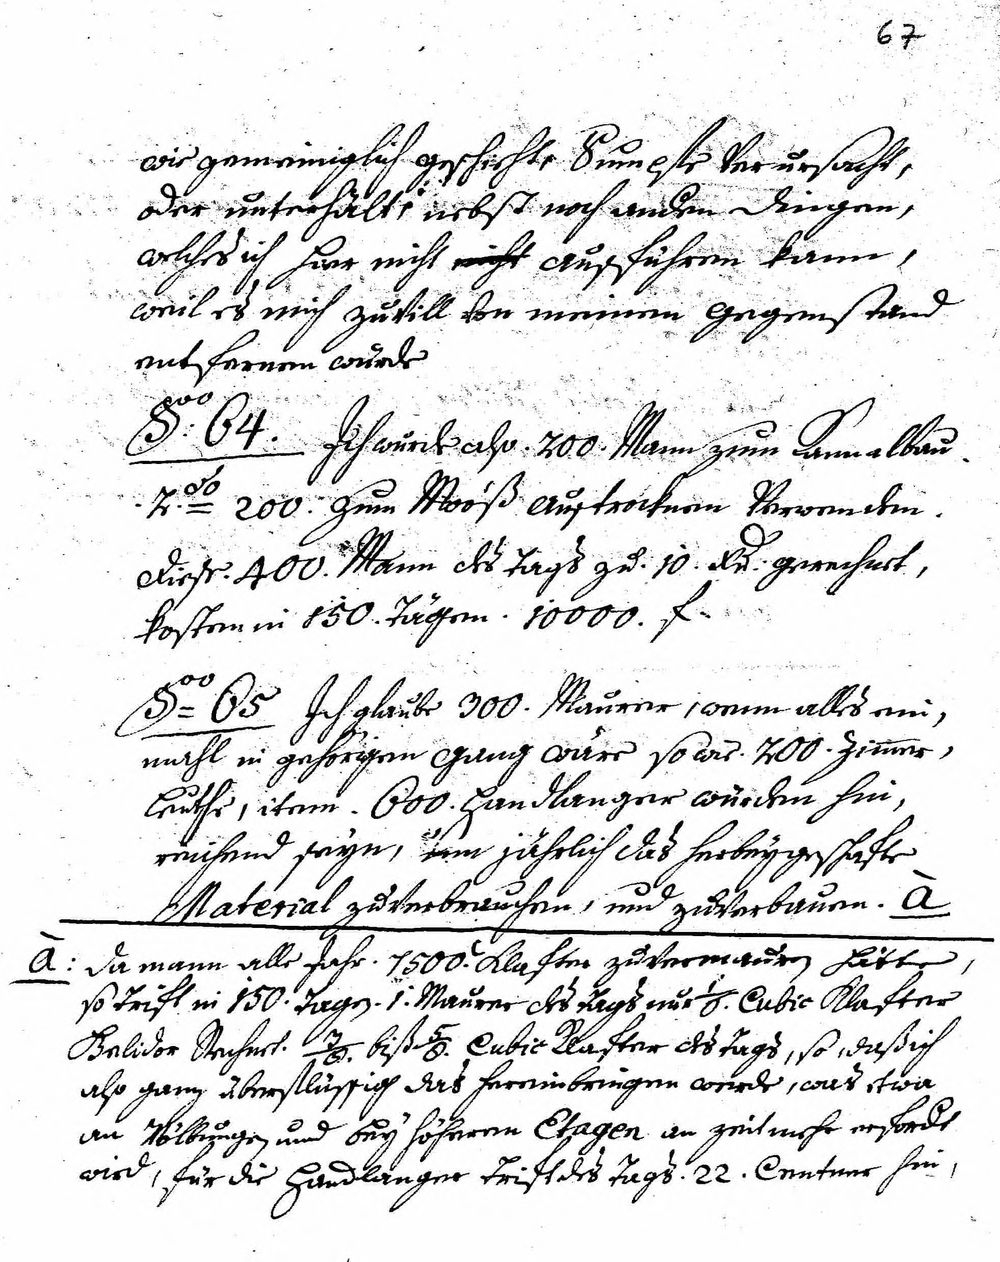 67
wie gemeiniglich geschieht, Sümpfe verursacht,
oder unterhält, nebst noch anderen Dingen,
welches ich hier nicht nicht ausführen kann,
weil es mich zuvill von meinem Gegenstand
entfernen wurde
§oo: 64. Ich wurde also 200. Mann zum Cannalbau
200. zum Mooß austrocknen Verwenden.
diese. 400. Mann des tags zu. 10. gerechnet,
kosten in 150. tägen. 10000. f.
§oo 65 Ich glaube 300. Maurer, wenn alles ein,
mahl in gehörigen gang wäre so wie. 200. Zimmer,
leuthe, item. 600. Handlanger würden hin,
reichend seyn, um jährlich das herbeygeschafte
Material zuverbrauchen, und zuverbauen. à
à: da mann alle Jahr. 7500. Klafter zuvermauren hätte,
so trift in 150. tagen. 1. Maurer des tags nur 1/6. Cubic Klafter
Belidor Rechnet. biß Cubic Klafter des tags, so, daß ich
also ganz überflüssig das hereinbringen werde, was etwa
an Wölbungen und bey höheren Etagen an zeit mehr erfordt
wird, für die Handlanger trift des tags. 22. Centner hin,